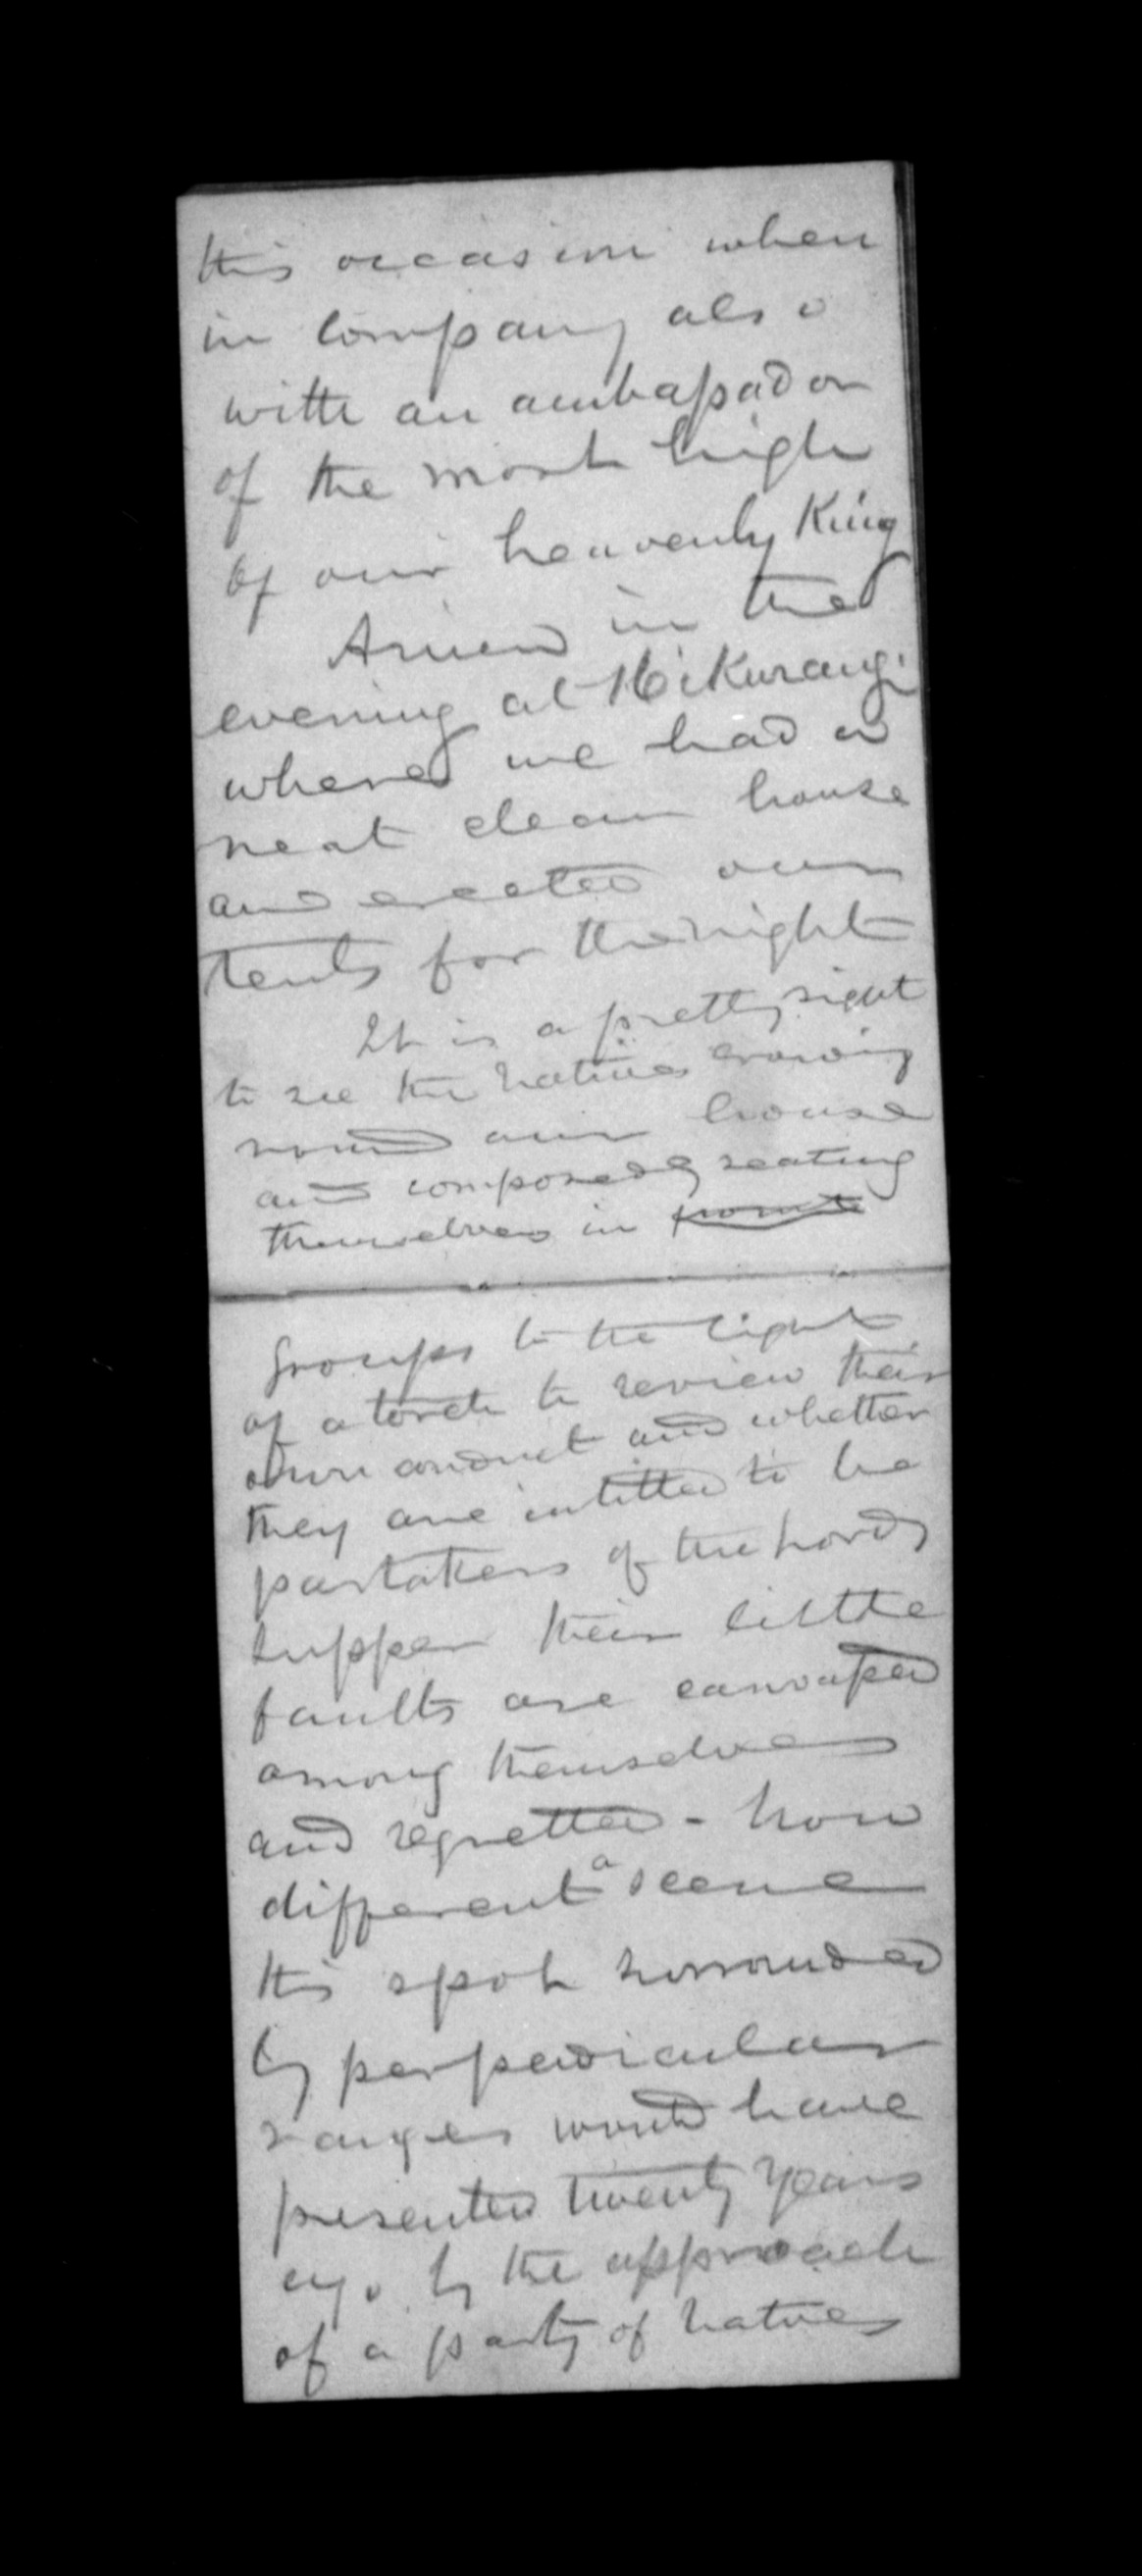 this occasion when
in company also
with an ambassador
of the most high
of our heavenly King
Arived in the
evening at Hikurangi
where we had a
neat clean house
and erected our
tents for the night
It is a pretty sight
to see the natives
round our house
and composedly seating
themselves in
groups to the light
of a torch to review their
own conduct and whether
they are intitled to be
partakers of the Lords
supper their little
faults are canvassed
among themselves
and regretted - how
different a scene
this spot surrounded
by perpedicular
ranges would have
presented twenty years
ago by the approach
of a party of natives